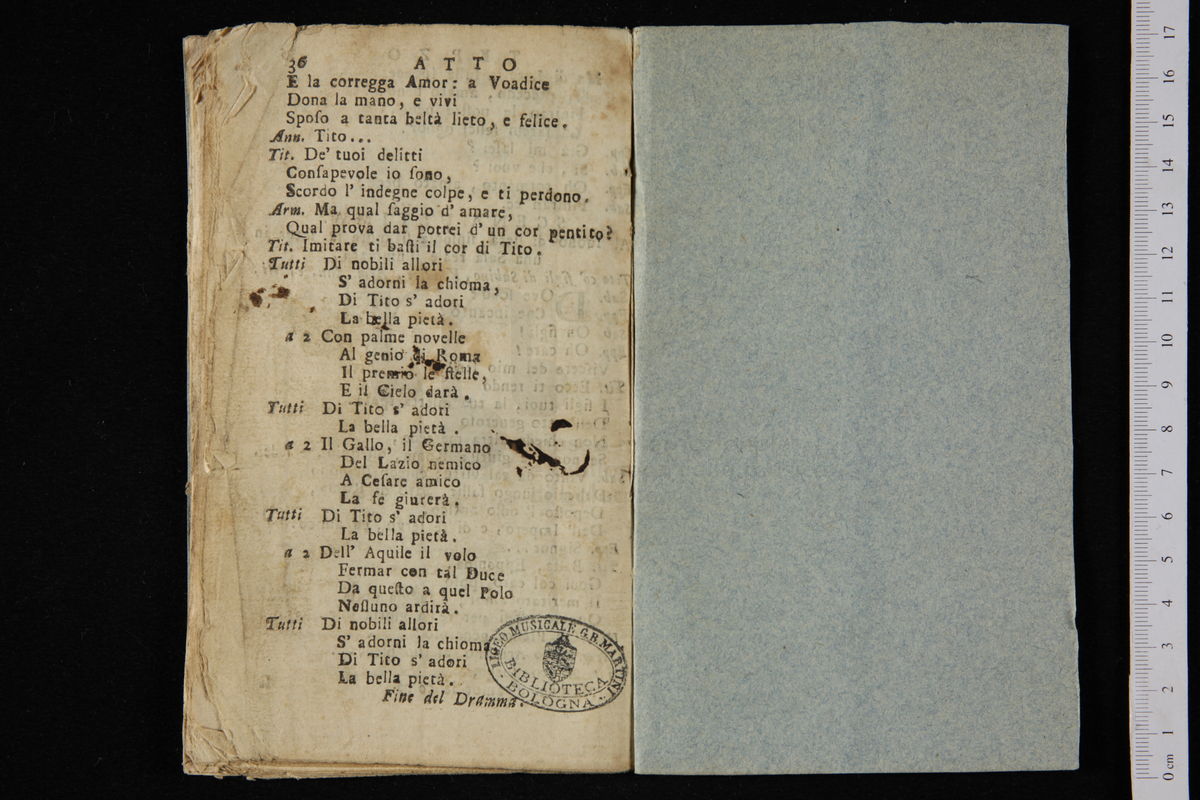 36 ATTO
E la corregga Amor: a Voadice
Dona la mano, e vivi
Spoſo a tanta beltà lieto, e felice.
Ann. Tito...
Tit. De' tuoi delitti
Conſapevole io ſono,
Scordo l' indegne colpe, e ti perdono.
Arm. Ma qual ſaggio d' amare,
Qual prova dar potrei d' un cor pentito?
Tit. Imitare ti baſti il cor di Tito.
Tutti Di nobili allori
S' adorni la chioma,
Di Tito s' adori
La bella pietà.
a 2 Con palme novelle
Al genio di Roma
Il premio le ſtelle,
E il Cielo darà.
Tutti Di Tito s' adori
La bella pietà.
a 2 Il Gallo, il Germano
Del Lazio nemico
A Ceſare amico
La fè giurerà.
Tutti Di Tito s' adori
La bella pietà.
a 2 Dell' Aquile il volo
Fermar con tal Duce
Da queſto a quel Polo
Neſſuno ardirà.
Tutti Di nobili allori
S' adorni la chioma
Di Tito s' adori
La bella pietà.
Fine del Dramma.
LICEO MUSICALE G.B. MARTINI
BIBLIOTECA
BOLOGNA
17
16
15
14
13
12
11
10
9
8
7
6
5
4
3
2
1
0 cm